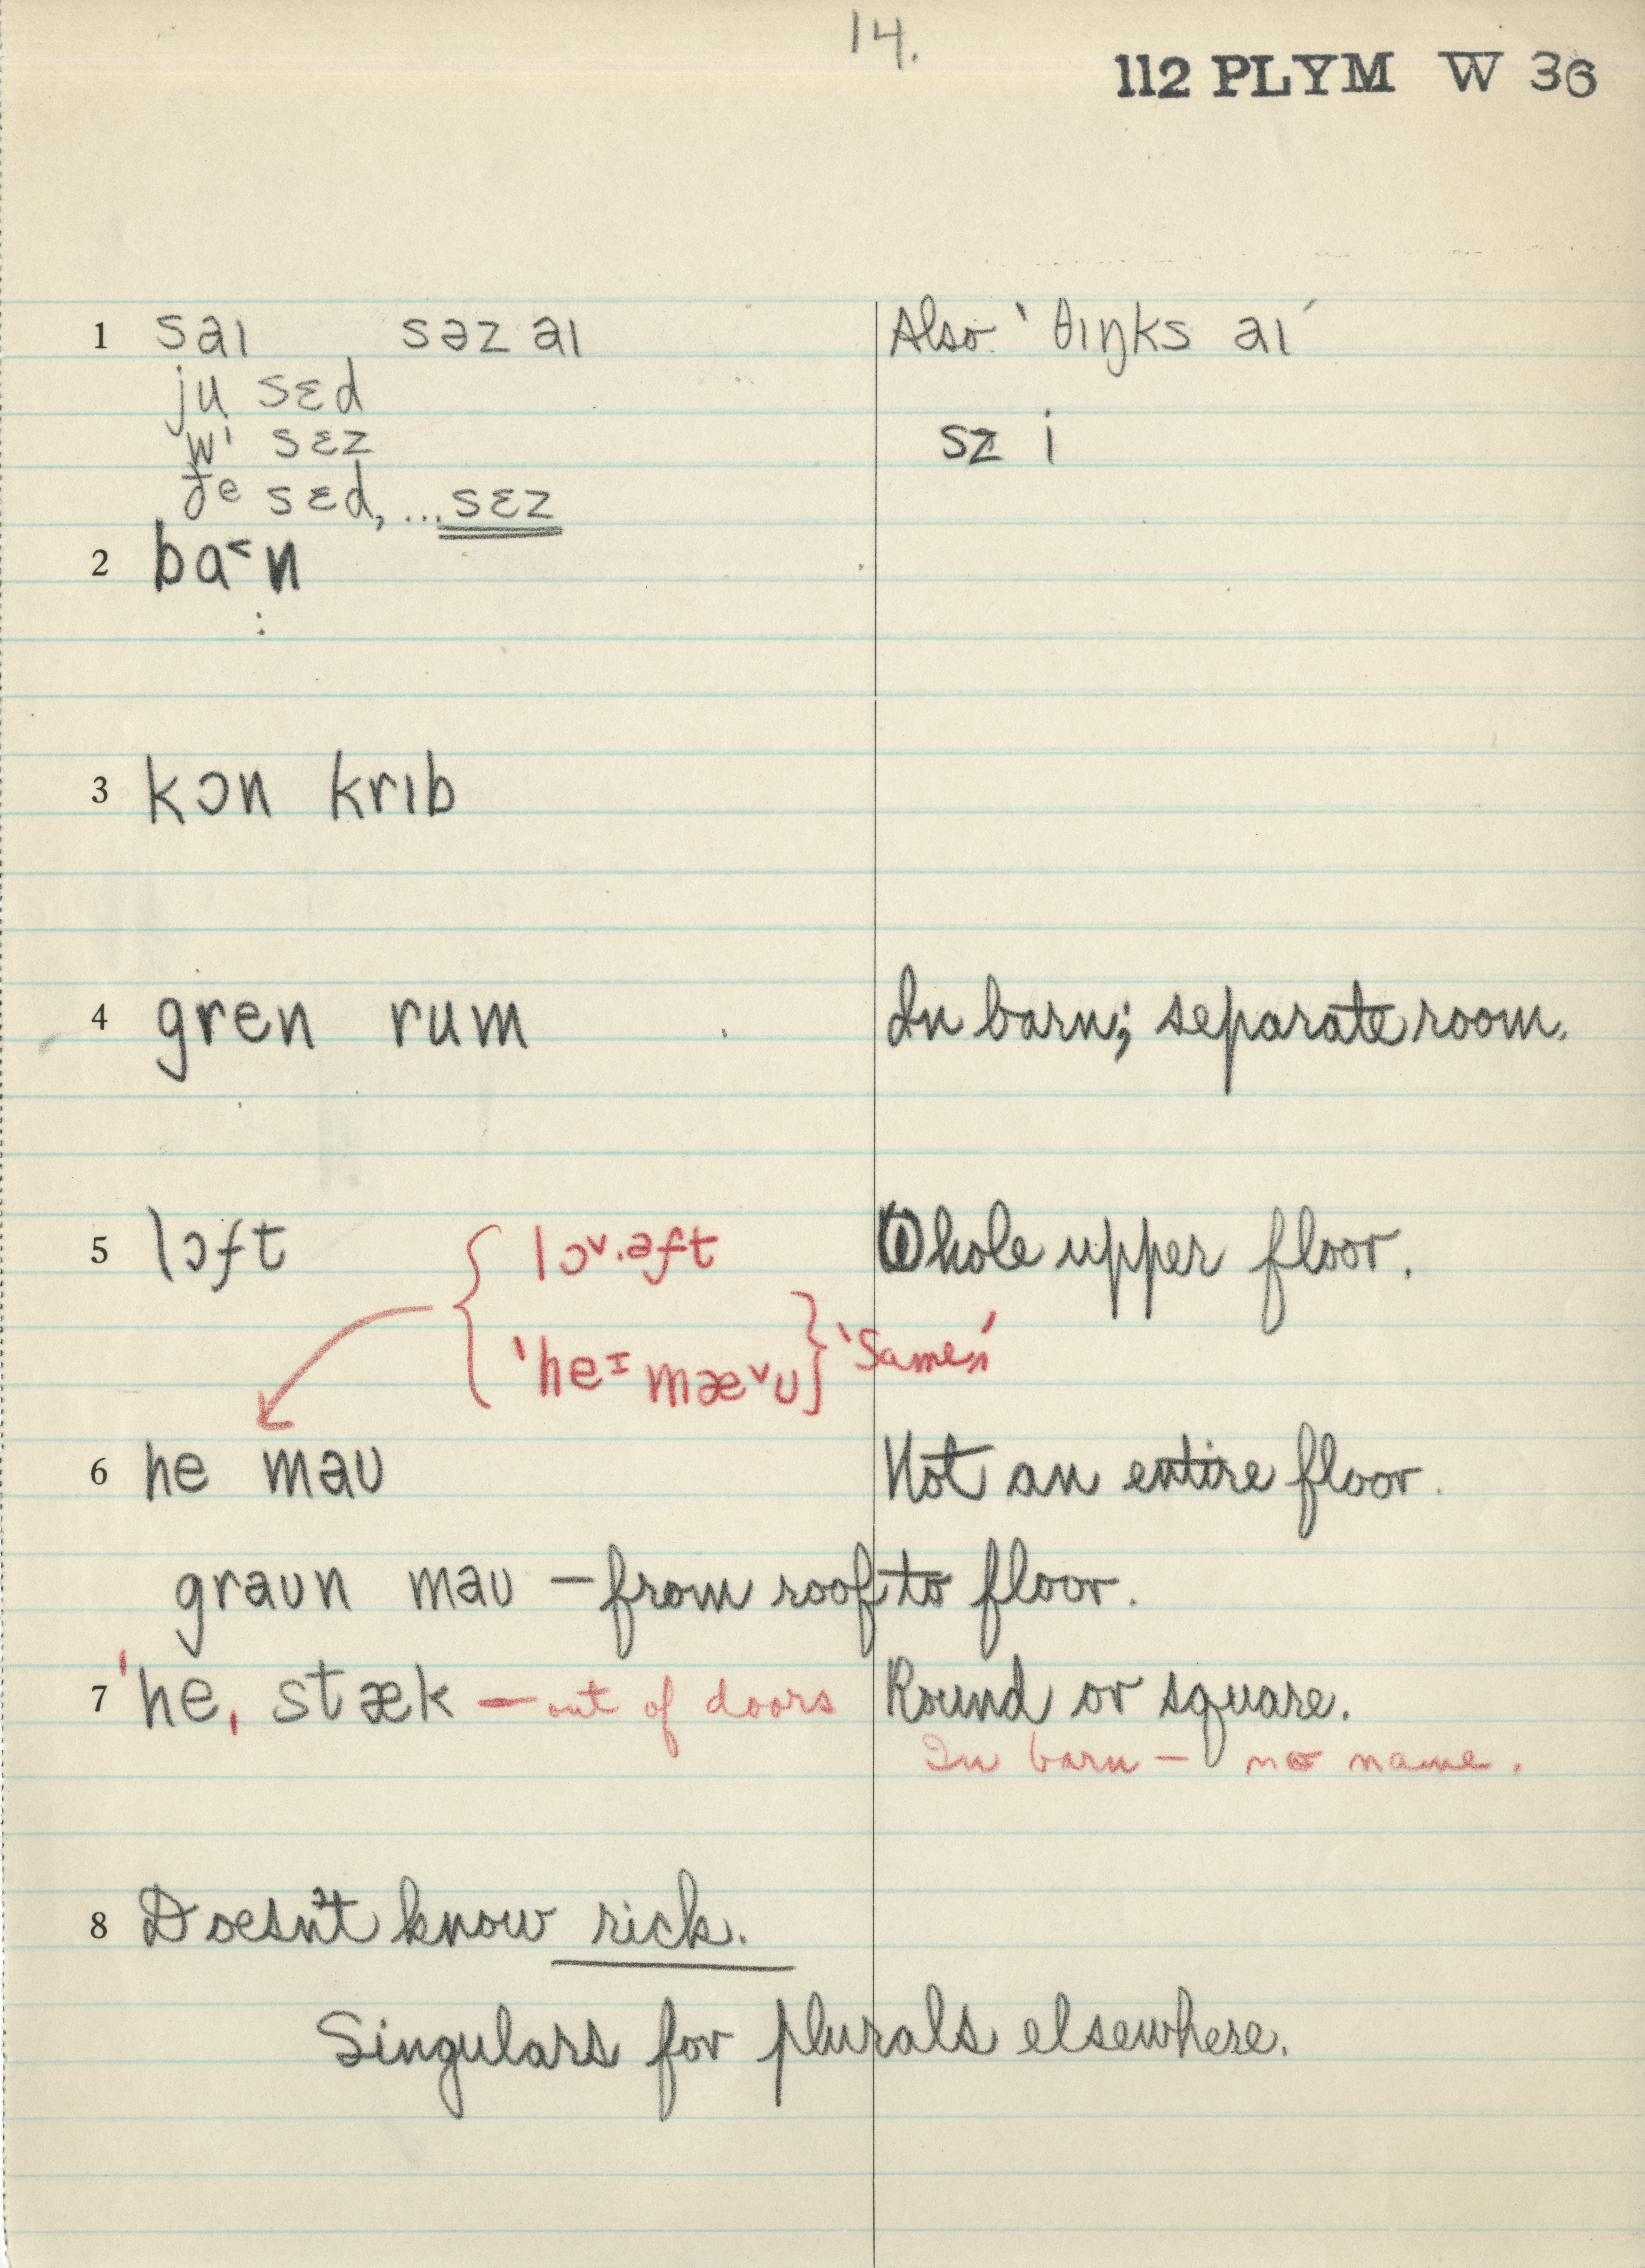 14.
112 PLYM W 36
1 saɪ səz aɪ Also 'θɪŋks aɪ'
ju sɛd
wi sɛz sz i
ðe sɛd, ... sɛz
2 ba˂n
3 kɔn krɪb
4 gren rum In barn; separate room.
5 lɔft lɔ˅·əft Whole upper floor.
'heɪ mæ˅ʊ 'Same,,'
6 he maʊ Not an entire floor.
graʊn maʊ – from roof to floor.
7 'he, stæk – out of doors Round or square.
In barn – no name.
8 Doesn't know rick.
Singulars for plurals elsewhere.